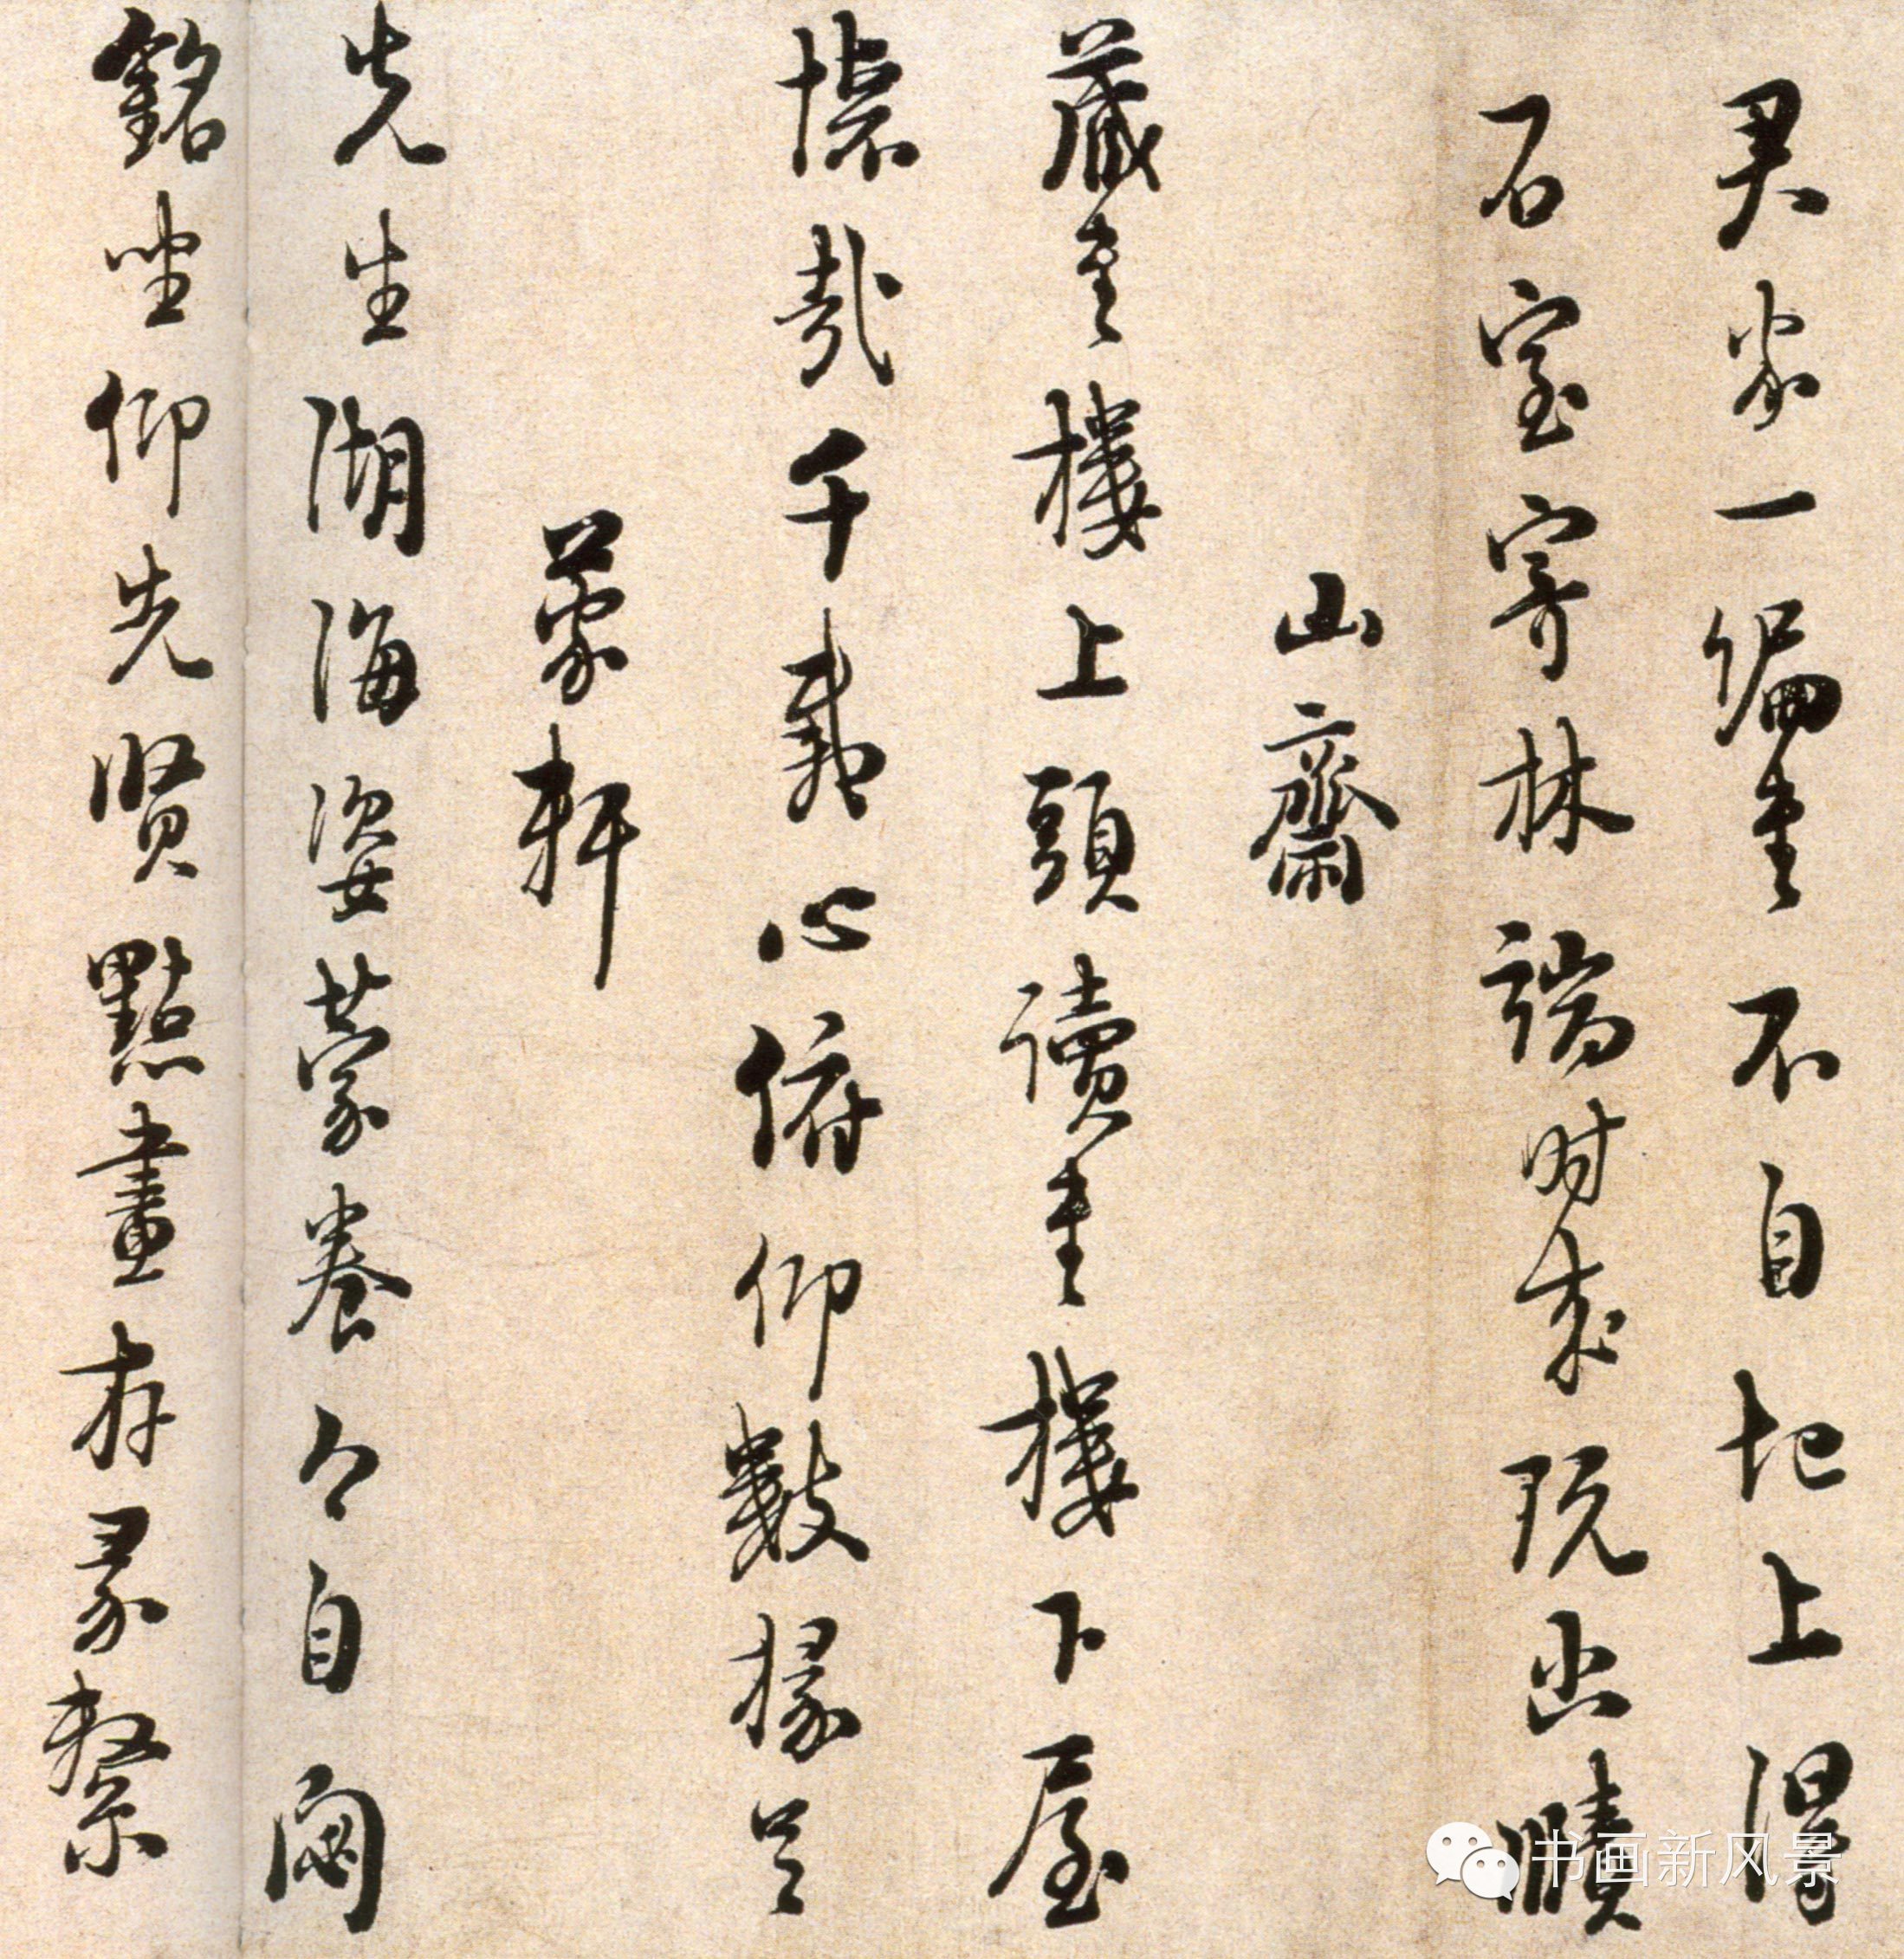 君家一編書不自圯上得
石室寄林端時來玩幽賾
山齋
藏書樓上頭讀書樓下屋
懷哉千載心俯仰數椽足
蒙軒
先生湖海姿蒙養今自閟
銘坐仰先賢點畫存彖繫
书画新风景